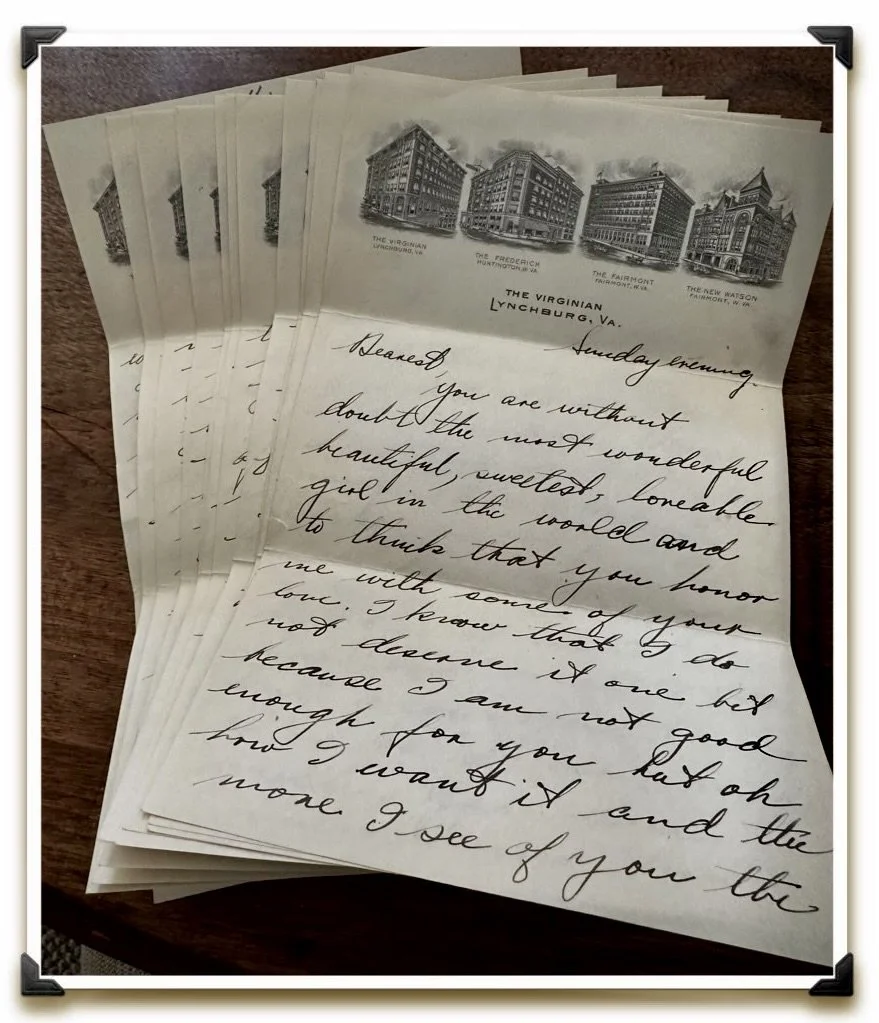 THE VIRGINIAN
LYNCHBURG, VA.
THE FREDERICK
HUNTINGTON, W. VA.
THE FAIRMONT
FAIRMONT, W. VA.
THE NEW WATSON
FAIRMONT, W. VA.
THE VIRGINIAN
LYNCHBURG, VA.
Sunday evening.
Dearest,
you are without
doubt the most wonderful
beautiful, sweetest, loveable
girl in the world and
to think that you honor
me with some of your
love. I know that I do
not deserve it one bit
because I am not good
enough for you but oh
how I want it and the
more I see of you the